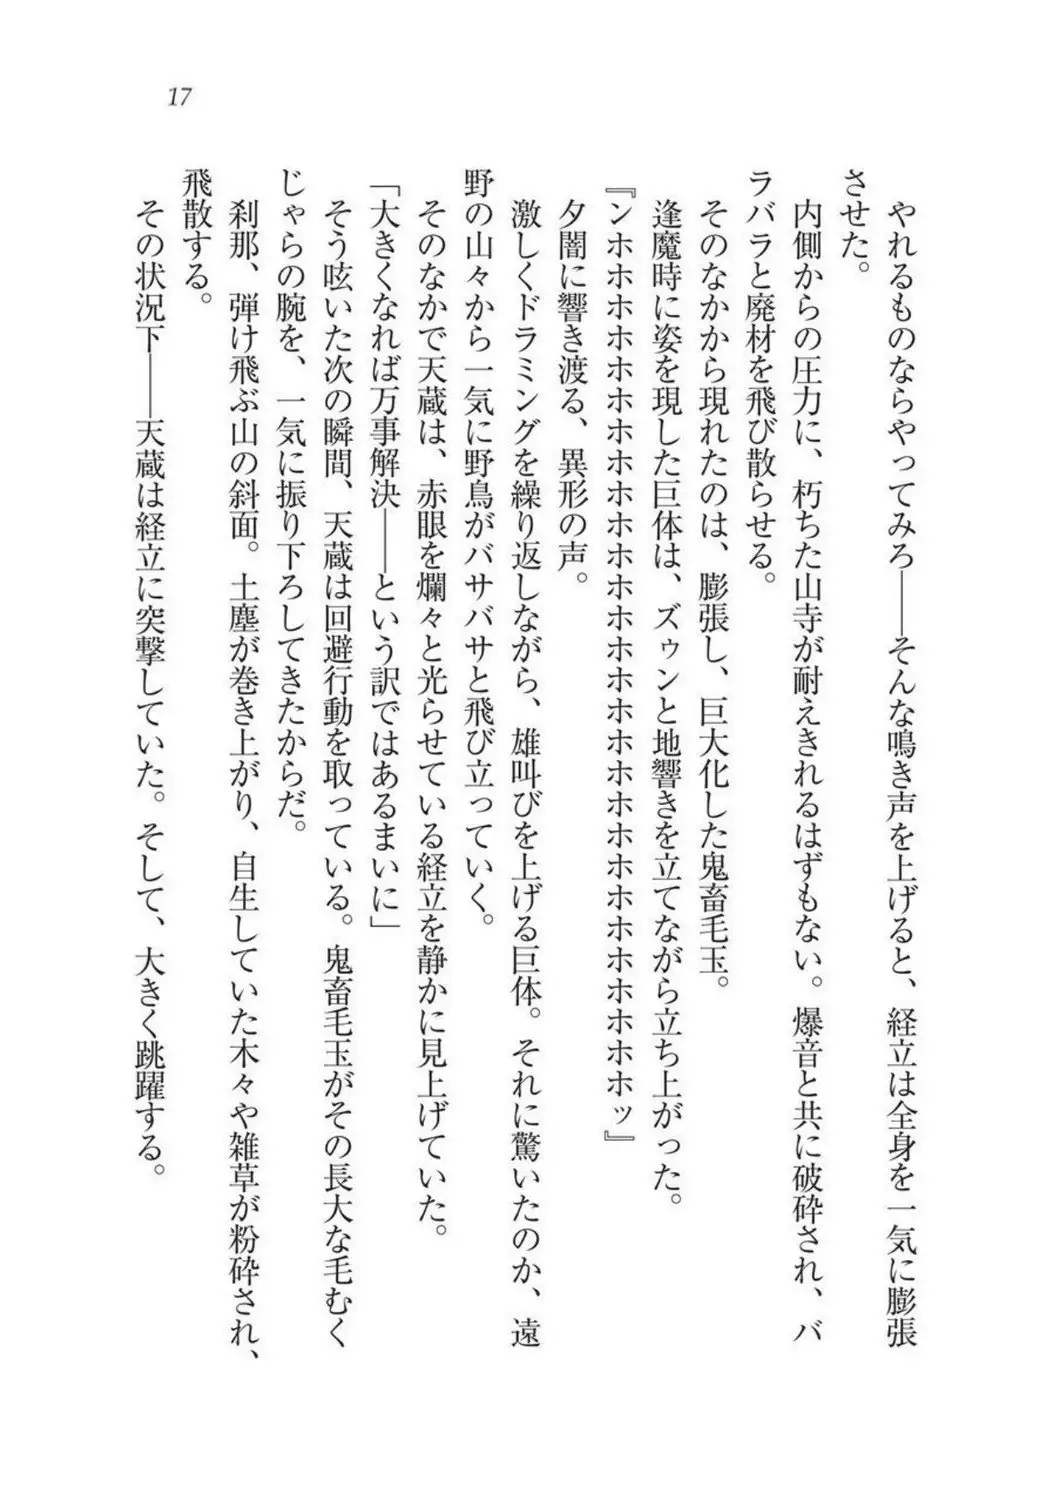 17
やれるものならやってみろ――そんな鳴き声を上げると、経立は全身を一気に膨張
させた。
内側からの圧力に、朽ちた山寺が耐えきれるはずもない。爆音と共に破砕され、バ
ラバラと廃材を飛び散らせる。
そのなかから現れたのは、膨張し、巨大化した鬼畜毛玉。
逢魔時に姿を現した巨体は、ズゥンと地響きを立てながら立ち上がった。
『ンホホホホホホホホホホホホホホホホホホホホホホホホホホホホホッ』
夕闇に響き渡る、異形の声。
激しくドラミングを繰り返しながら、雄叫びを上げる巨体。それに驚いたのか、遠
野の山々から一気に野鳥がバサバサと飛び立っていく。
そのなかで天蔵は、赤眼を爛々と光らせている経立を静かに見上げていた。
「大きくなれば万事解決――という訳ではあるまいに」
そう呟いた次の瞬間、天蔵は回避行動を取っている。鬼畜毛玉がその長大な毛むく
じゃらの腕を、一気に振り下ろしてきたからだ。
刹那、弾け飛ぶ山の斜面。土塵が巻き上がり、自生していた木々や雑草が粉砕され、
飛散する。
その状況下――天蔵は経立に突撃していた。そして、大きく跳躍する。